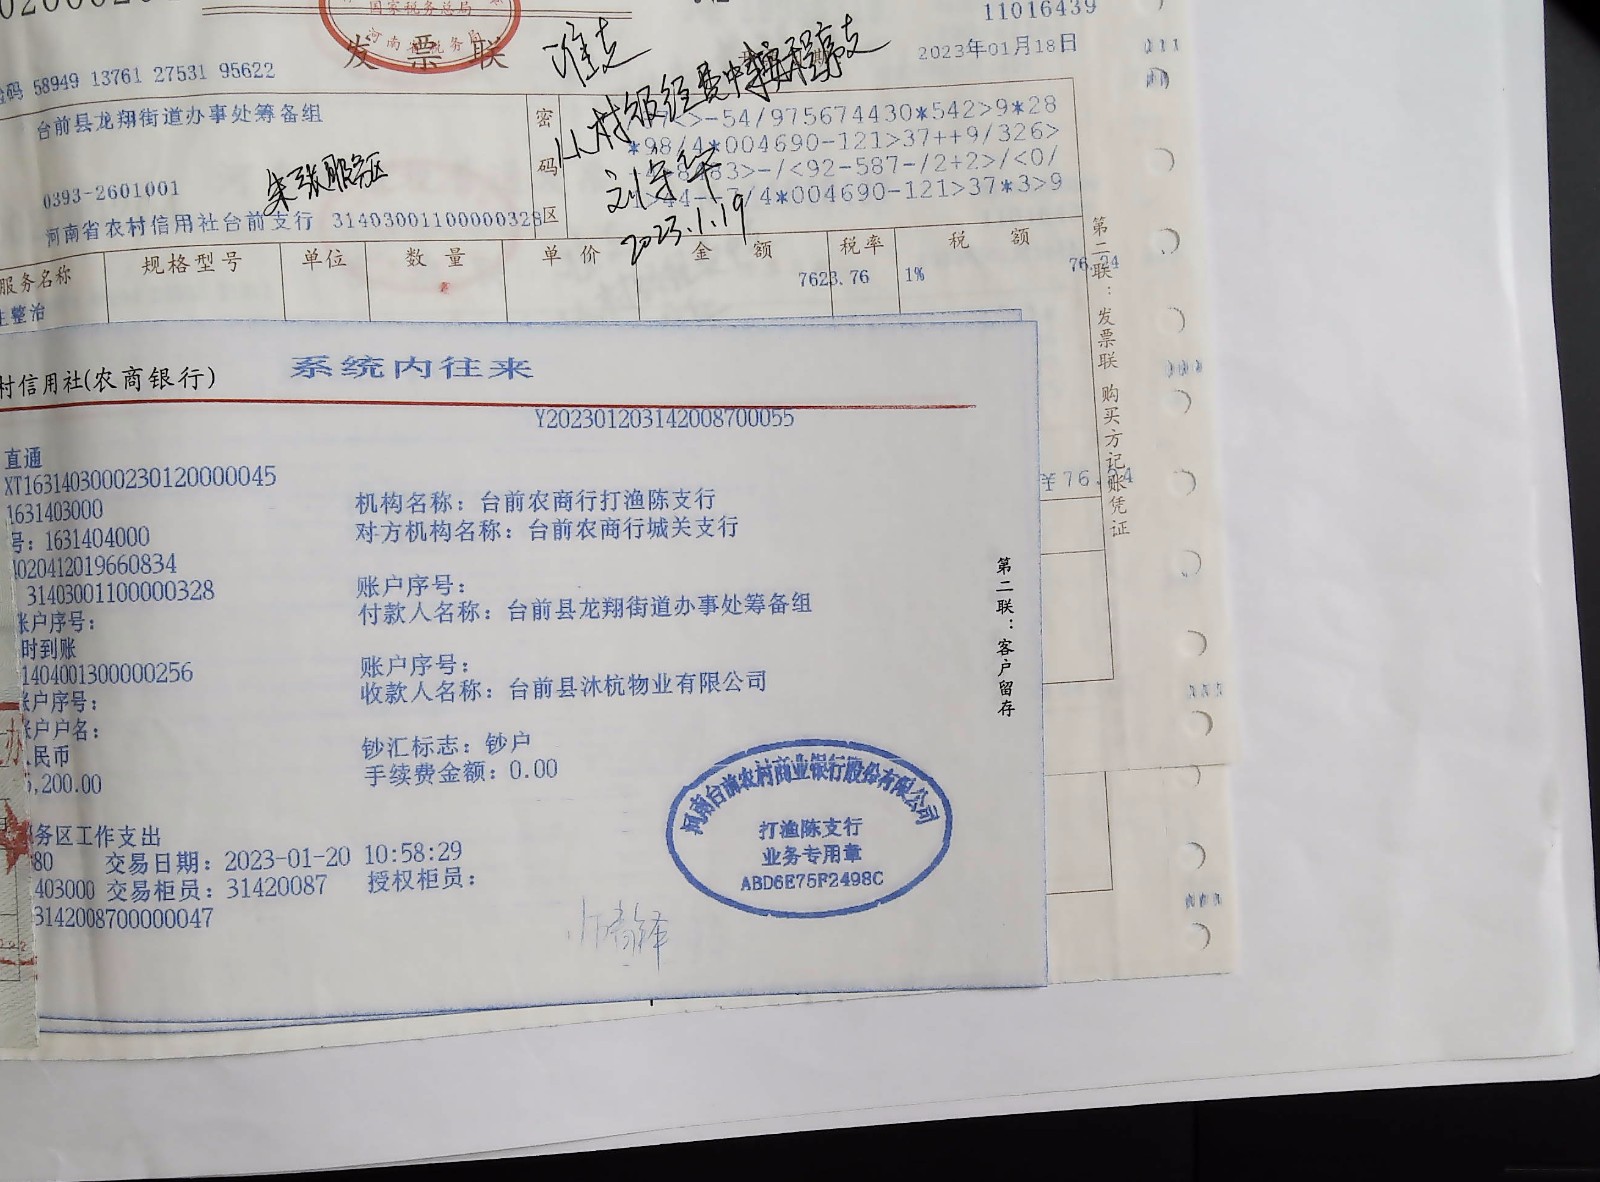 11016439
国家税务总局
河南省税务局
发票联
准支
2023年01月18日
码 58949 13761 27531 95622
从村级经费中按程序支
刘守华
2023.1.19
台前县龙翔街道办事处筹备组
0393-2601001
朱张服务区
河南省农村信用社台前支行 31403001100000328
密码区
>-54/975674430*542>9*28
*98/4*004690-121>37++9/326>
63>-/<92-587-/2+2>/<0/
/4*004690-121>37*3>9
服务名称 规格型号 单位 数量 单价 金额 税率 税额
7623.76 1% 76.24
生整治
¥76.24
第二联：发票联 购买方记账凭证
村信用社(农商银行) 系统内往来
Y202301203142008700055
直通
XT1631403000230120000045
1631403000 机构名称：台前农商行打渔陈支行
号：1631404000 对方机构名称：台前农商行城关支行
020412019660834
31403001100000328 账户序号：
账户序号： 付款人名称：台前县龙翔街道办事处筹备组
时到账
1404001300000256 账户序号：
账户序号： 收款人名称：台前县沐杭物业有限公司
账户户名：
民币 钞汇标志：钞户
,200.00 手续费金额：0.00
务区工作支出
80 交易日期：2023-01-20 10:58:29
403000 交易柜员：31420087 授权柜员：
3142008700000047
第二联：客户留存
河南台前农村商业银行股份有限公司
打渔陈支行
业务专用章
ABD6E75F2498C